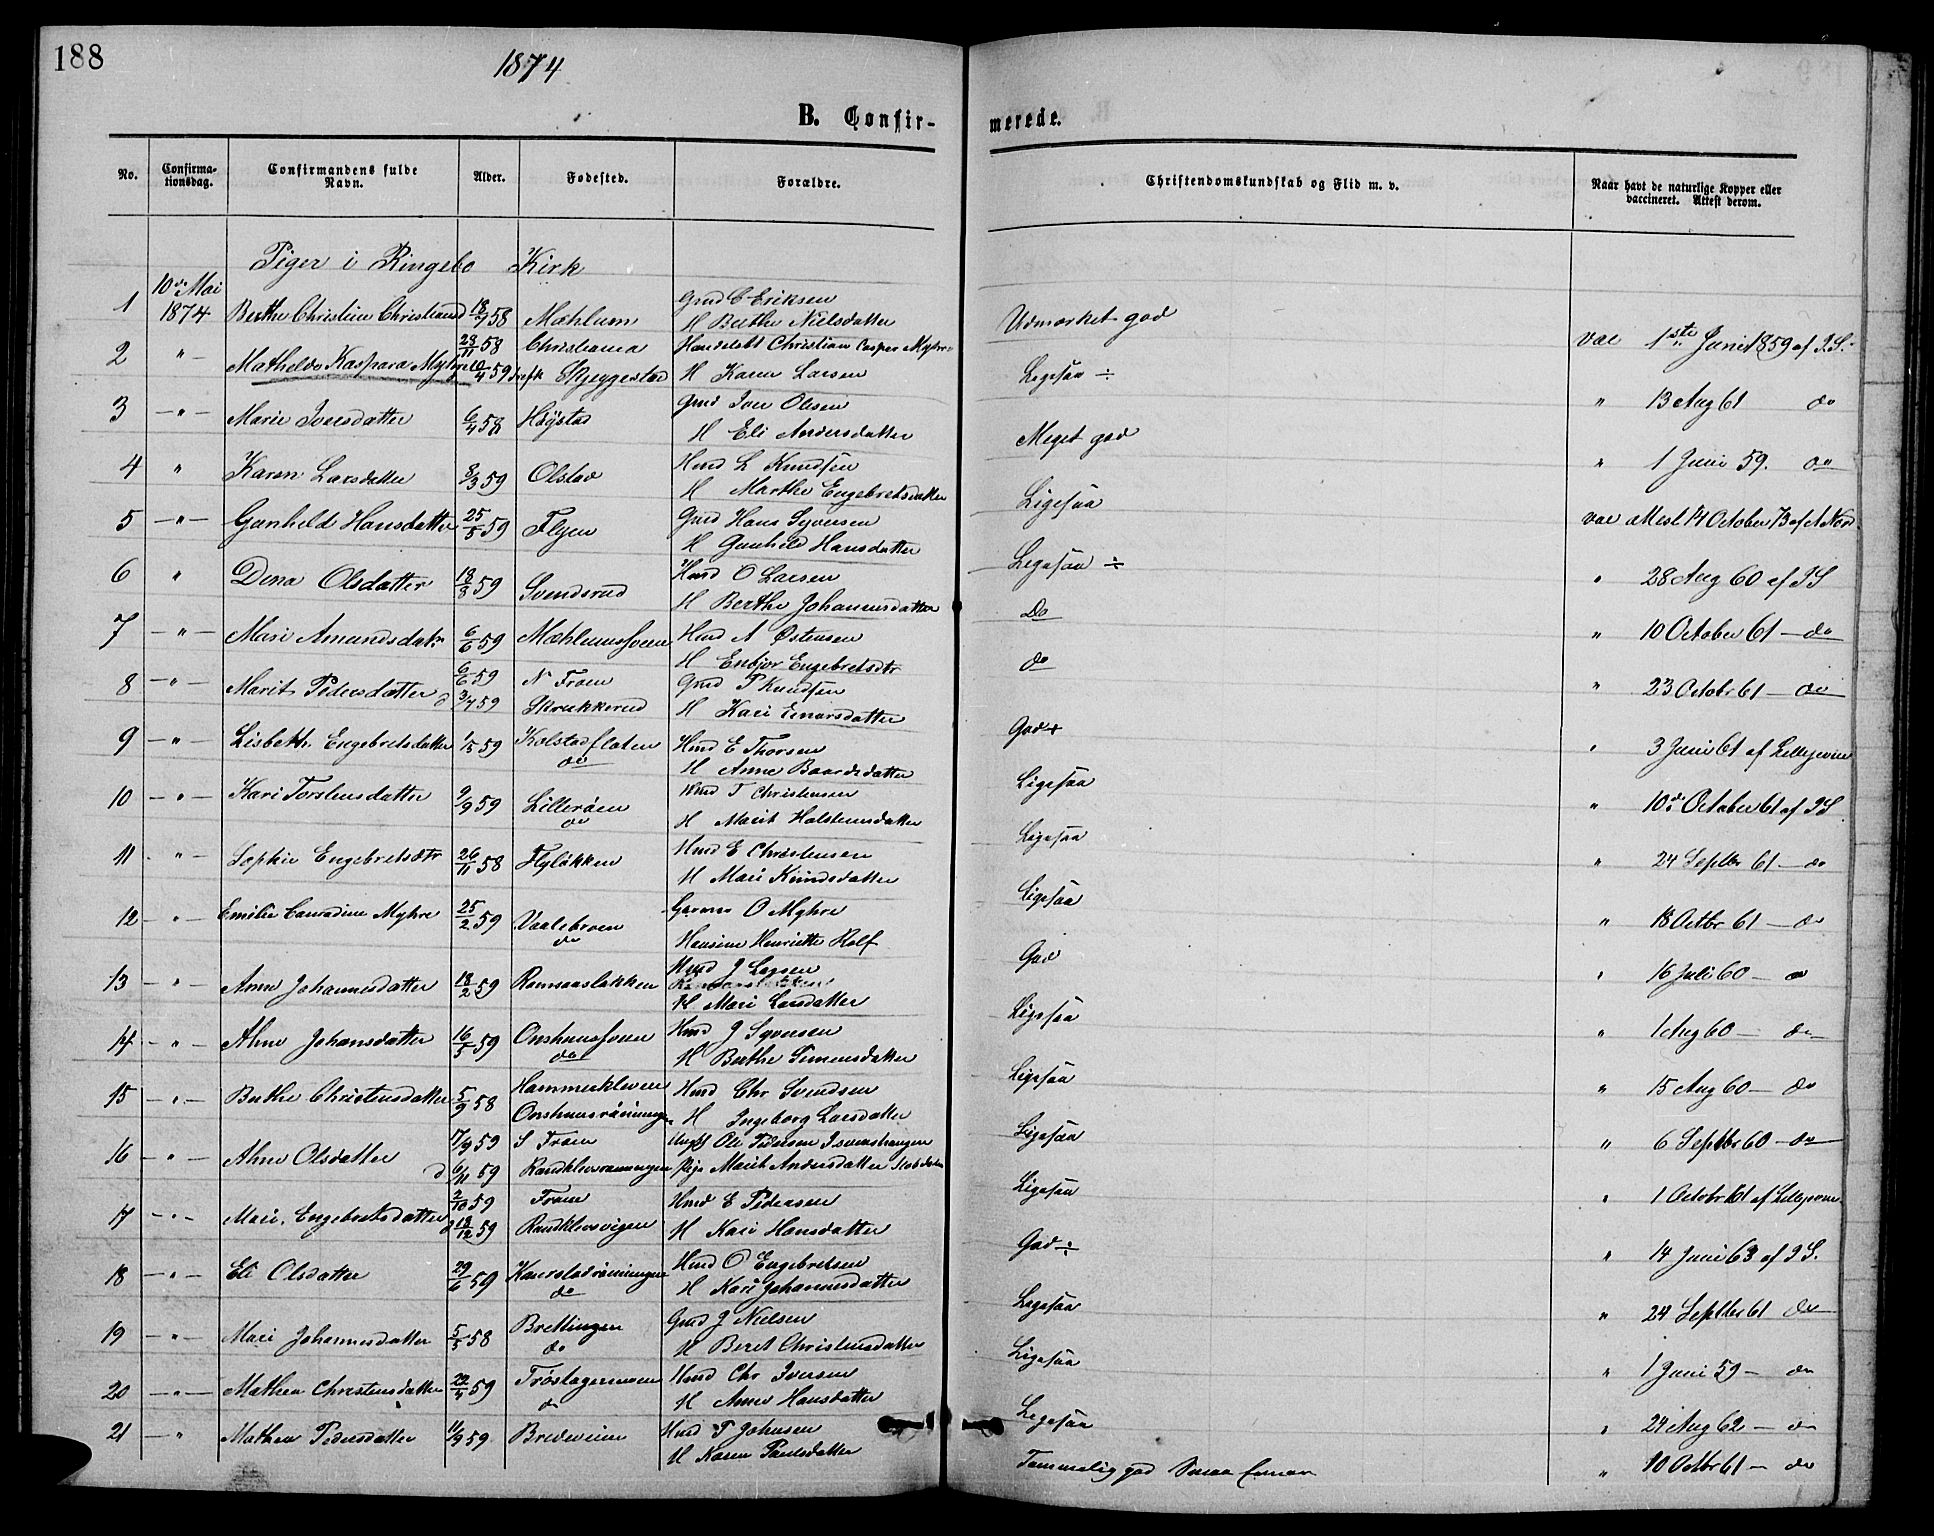 188
1874
B. Confir-
merede.
No.
Confirma-
tionsdag.
Confirmandens fulde
Navn.
Alder.
Fødested.
Forældre.
Christendomskundskab og Flid m. v.
Naar havt de naturlige Kopper eller
vaccineret. Attest derom.
Piger i Ringebo Kirk
10de Mai
1 1874 Berthe Christine Christiansd 18/7 58 Mæhlum Gmd C Eriksen
H Berthe Nielsdatter
Udmærket god
vac 1ste Juni 1859 af J.S.
2 " 28/11 58 Christiania Handelsb Christian Casper Myhre
Mathelde Kaspara Myhre 10/4 59 Skjeggestad H Karen Larsen
Ligesaa ÷
" 13 Aug 61 do
3 - " - Marie Iversdatter 6/4 58 Høystad Gmd Iver Olesen
H Eli Andersdatter
Meget god
" 1 Juni 59. do
4 " Karen Larsdatter 8/3 59 Olstad Hmd L Knudsen
H Marthe Engebretsdatter
Ligesaa
vac Attest 14 October 73 af A Nord
5 - " - Gunhild Hansdatter 25/5 59 Flyen Gmd Hans Syversen
H Gunhild Hansdatter
Ligesaa ÷
" 28 Aug 60 af J S
6 " Dina Olsdatter 18/8 59 Svendsrud Hmd O Larsen
H Berthe Johannesdatter
Do
" 10 October 61 - do
7 - " - Mari Amundsdatr 6/6 59 Mæhlumsveen Hmd A Østensen
H Enbjør Engebretsdtr
do
" 23 Octobr 61 - do
8 - " - Marit Pedersdatter 6/6 59 N Froen Gmd P Knudsen
d 3/7 59 Skrukkerud H Kari Einarsdatter
God +
" 3 Juni 61 af Lillejevne
9 - " - Lisbeth Engebretsdatter 1/5 59 Kolstadfloten Hmd E Thorsen
do H Anne Baardsdatter
Ligesaa
" 10de October 61 af J S
10 - " - Kari Torstensdatter 9/9 59 Lillerøen Hmd T Christensen
do H Marit Holstensdatter
Ligesaa
" 24 Septbr 61 - do
11 - " - Sophie Engebretsdtr 26/11 58 Flyløkken Hmd E Christensen
H Mari Knudsdatter
Ligesaa
" 18 Octbr 61 - do
12 - " - Emilie Conradine Myhre 25/2 59 Vaalebroen Garver O Myhre
do Hansine Henriette Rolf
God
" 16 Juli 60 - do
13 - " - Anne Johannesdatter 18/2 59 Romsaasløkken Hmd J Larsen
H Mari Larsdatter
Ligesaa
" 1 Aug 60 - do
14 - " - Ahne Johansdatter 16/5 59 Onshussveen Hmd J Syversen
do H Berthe Simensdatter
Ligesaa
" 15 Aug 60 - do
15 - " - Berthe Christensdatter 5/9 58 Hammerkleven Hmd Chr Svendsen
Onshusrønningen H Ingeborg Larsdatter
Ligesaa
" 6 Septbr 60 - do
16 - " - Ahne Olsdatter 17/9 59 S Froen Ungk Ole Pedersen Isvenshaugen
d 6/11 59 Randklevrønningen Pige Marit Andersdatter
Ligesaa
" 1 Octobr 61 af Lillejevne
17 - " - Mari Engebretsdatter 2/10 59 Froen Hmd E Pedersen
d 18/12 59 Randklevsvigen H Kari Hansdatter
God ÷
" 14 Juni 63 af J S.
18 - " - Eli Olsdatter 29/6 59 Kaarstadrønningen Hmd O Engebretsen
do H Kari Johannesdatter
Ligesaa
" 24 Septbr 61 do
19 - " - Mari Johannesdatter 5/5 58 Brettingen Gmd J Nielsen
do H Beret Christensdatter
Ligesaa
" 1 Juni 59 - do
20 - " - Mathea Christensdatter 22/4 59 Trøstagermoen Hmd Chr Iversen
do H Anne Hansdatter
Ligesaa
" 24 Aug 62 - do
21 - " Mathea Pedersdatter 11/9 59 Bredeveien Hmd P Johnsen
H Karen Paulsdatter
Temmelig god
" 10 Octbr 61 - do